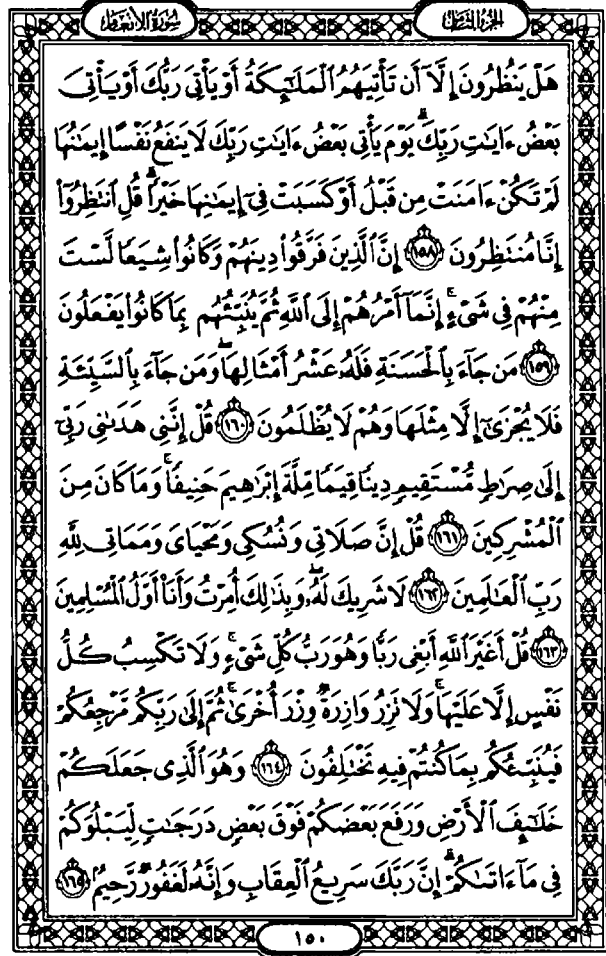 الجزء الثامن
سورة الأنعام
هَلْ يَنظُرُونَ إِلَّآ أَن تَأْتِيَهُمُ ٱلْمَلَـٰٓئِكَةُ أَوْ يَأْتِىَ رَبُّكَ أَوْ يَأْتِىَ
بَعْضُ ءَايَـٰتِ رَبِّكَ ۗ يَوْمَ يَأْتِى بَعْضُ ءَايَـٰتِ رَبِّكَ لَا يَنفَعُ نَفْسًا إِيمَـٰنُهَا
لَمْ تَكُنْ ءَامَنَتْ مِن قَبْلُ أَوْ كَسَبَتْ فِىٓ إِيمَـٰنِهَا خَيْرًا ۗ قُلِ ٱنتَظِرُوٓا۟
إِنَّا مُنتَظِرُونَ ﴿١٥٨﴾ إِنَّ ٱلَّذِينَ فَرَّقُوا۟ دِينَهُمْ وَكَانُوا۟ شِيَعًا لَّسْتَ
مِنْهُمْ فِى شَىْءٍ ۚ إِنَّمَآ أَمْرُهُمْ إِلَى ٱللَّهِ ثُمَّ يُنَبِّئُهُم بِمَا كَانُوا۟ يَفْعَلُونَ
﴿١٥٩﴾ مَن جَآءَ بِٱلْحَسَنَةِ فَلَهُۥ عَشْرُ أَمْثَالِهَا ۖ وَمَن جَآءَ بِٱلسَّيِّئَةِ
فَلَا يُجْزَىٰٓ إِلَّا مِثْلَهَا وَهُمْ لَا يُظْلَمُونَ ﴿١٦٠﴾ قُلْ إِنَّنِى هَدَىٰنِى رَبِّىٓ
إِلَىٰ صِرَٰطٍ مُّسْتَقِيمٍ دِينًا قِيَمًا مِّلَّةَ إِبْرَٰهِيمَ حَنِيفًا ۚ وَمَا كَانَ مِنَ
ٱلْمُشْرِكِينَ ﴿١٦١﴾ قُلْ إِنَّ صَلَاتِى وَنُسُكِى وَمَحْيَاىَ وَمَمَاتِى لِلَّهِ
رَبِّ ٱلْعَـٰلَمِينَ ﴿١٦٢﴾ لَا شَرِيكَ لَهُۥ ۖ وَبِذَٰلِكَ أُمِرْتُ وَأَنَا۠ أَوَّلُ ٱلْمُسْلِمِينَ
﴿١٦٣﴾ قُلْ أَغَيْرَ ٱللَّهِ أَبْغِى رَبًّا وَهُوَ رَبُّ كُلِّ شَىْءٍ ۚ وَلَا تَكْسِبُ كُلُّ
نَفْسٍ إِلَّا عَلَيْهَا ۚ وَلَا تَزِرُ وَازِرَةٌ وِزْرَ أُخْرَىٰ ۚ ثُمَّ إِلَىٰ رَبِّكُم مَّرْجِعُكُمْ
فَيُنَبِّئُكُم بِمَا كُنتُمْ فِيهِ تَخْتَلِفُونَ ﴿١٦٤﴾ وَهُوَ ٱلَّذِى جَعَلَكُمْ
خَلَـٰٓئِفَ ٱلْأَرْضِ وَرَفَعَ بَعْضَكُمْ فَوْقَ بَعْضٍ دَرَجَـٰتٍ لِّيَبْلُوَكُمْ
فِى مَآ ءَاتَىٰكُمْ ۗ إِنَّ رَبَّكَ سَرِيعُ ٱلْعِقَابِ وَإِنَّهُۥ لَغَفُورٌ رَّحِيمٌۢ ﴿١٦٥﴾
١٥٠